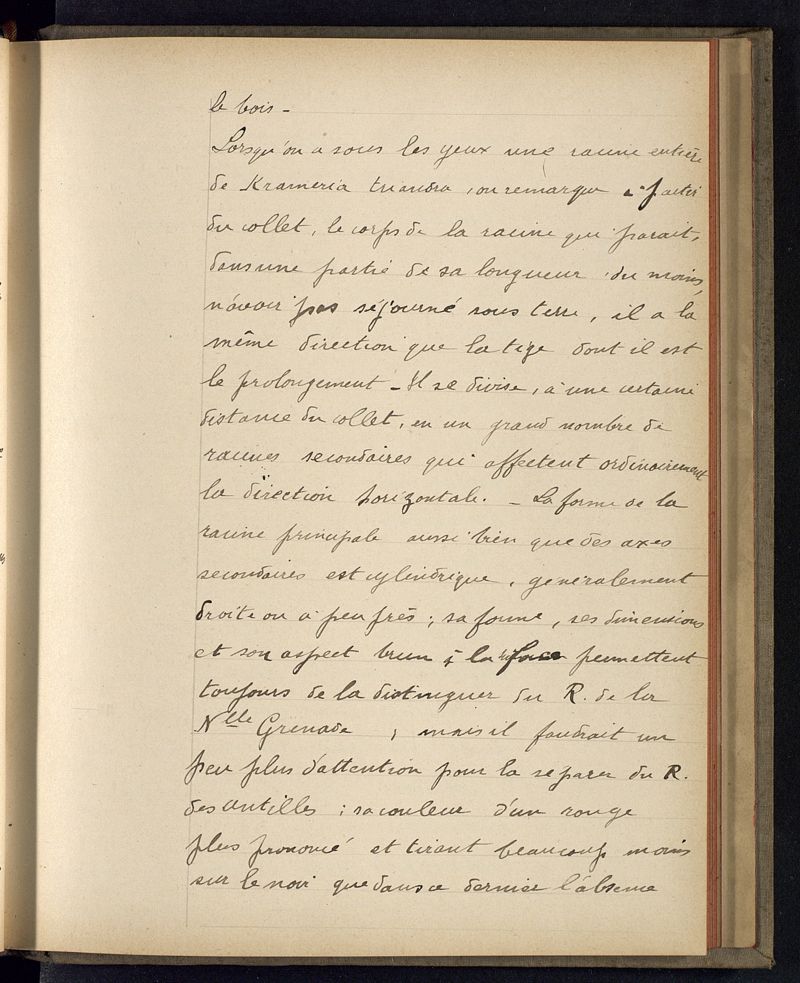 le bois -
Lorsqu'on a sous les yeux une racine entière
de Krameria triandra, on remarque à partir
du collet, le corps de la racine qui parait,
dans une partie de sa longueur du moins,
n'avoir pas séjourné sous terre, il a la
même direction que la tige dont il est
le prolongement - Il se divise, à une certaine
distance du collet, en un grand nombre de
racines secondaires qui affectent ordinairement
la direction horizontale. - La forme de la
racine principale aussi bien que des axes
secondaires est cylindrique, généralement
droite ou à peu près; sa forme, ses dimensions
et son aspect brun à la permettent
toujours de la distinguer du R. de la
Nlle Grenade, mais il faudrait un
peu plus d'attention pour la separer du R.
des Antilles; sa couleur d'un rouge
plus prononcé et tirant beaucoup moins
sur le noir que dans ce dernier l'absence